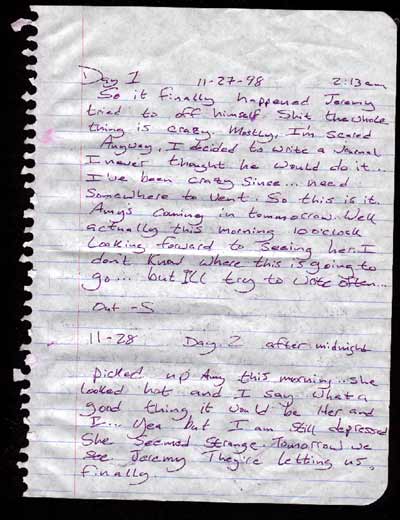 Day 1 11-27-98 2:13 am
So it finally happened Jeremy
tried to off himself. Shit the whole
thing is crazy. Mostly, I'm scared
Anyway, I decided to write a Journal
I never thought he would do it...
I've been crazy since... need
Somewhere to vent. So this is it.
Amy's coming in tommorrow. Well
actually this morning 10 o'clock
Looking forward to seeing her. I
don't know where this is going to
go.... but I'll try to write often...
Out -S
11-28 Day 2 after midnight
Picked up Amy this morning... she
looked hot and I say what a
good thing it would be Her and
I... Yea but I am still depressed
She seemed strange. Tomorrow we
see Jeremy They're letting us,
finally